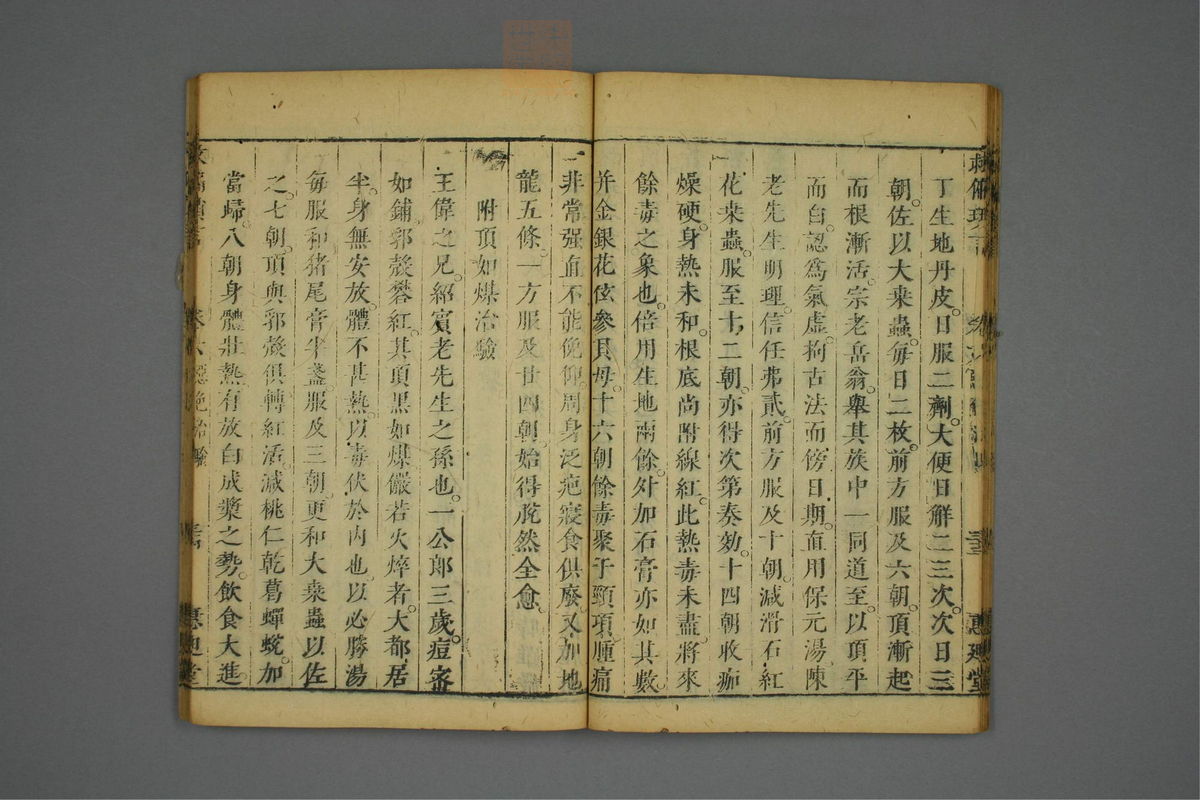 丁生地丹皮日服二劑大便日解二三次次日三
朝佐以大桒蟲每日二枚前方服及六朝頂漸起
而根漸活宗老岳翁舉其族中一同道至以頂平
而白認爲氣虛拘古法而傍日期直用保元湯陳
老先生明理信任弗貳前方服及十朝减滑石紅
花桒蟲服至十二朝亦得次第奏効十四朝收痂
燥硬身熱未和根底尚附線紅此熱毒未盡將來
餘毒之象也倍用生地兩餘外加石膏亦如其數
并金銀花伭參貝母十六朝餘毒聚于頸項腫痛
非常强直不能俛仰周身泛疤寢食俱廢又加地
龍五條一方服及廿四朝始得脫然全愈
附頂如煤治驗
王偉之兄紹賓老先生之孫也一公郎三歲痘密
如鋪郭殼礬紅其頂黑如煤儼若火焠者大都居
半身無安放體不甚熱以毒伏於內也以必勝湯
每服和猪尾膏半盞服及三朝更和大桒蟲以佐
之七朝頂與郭殼俱轉紅活减桃仁乾葛蟬蛻加
當歸八朝身體壯熱有放白成漿之勢飲食大進